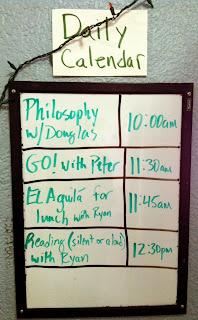 Daily
Calendar
Philosophy
w/Douglas
10:00am
GO! with Peter
11:30am
El Aguila for
lunch with Ryan
11:45am
Reading (silent or aloud)
with Ryan
12:30pm